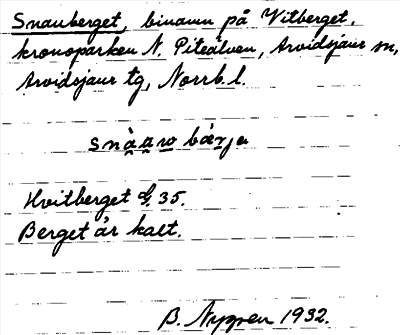 Snauberget, binamn på Vitberget,
kronoparken N. Piteälven, Arvidsjaur sn,
Arvidsjaur tg, Norrb. l.
snàaw bärja
Hvitberget G. 35.
Berget är kalt.
B. Nygren 1932.